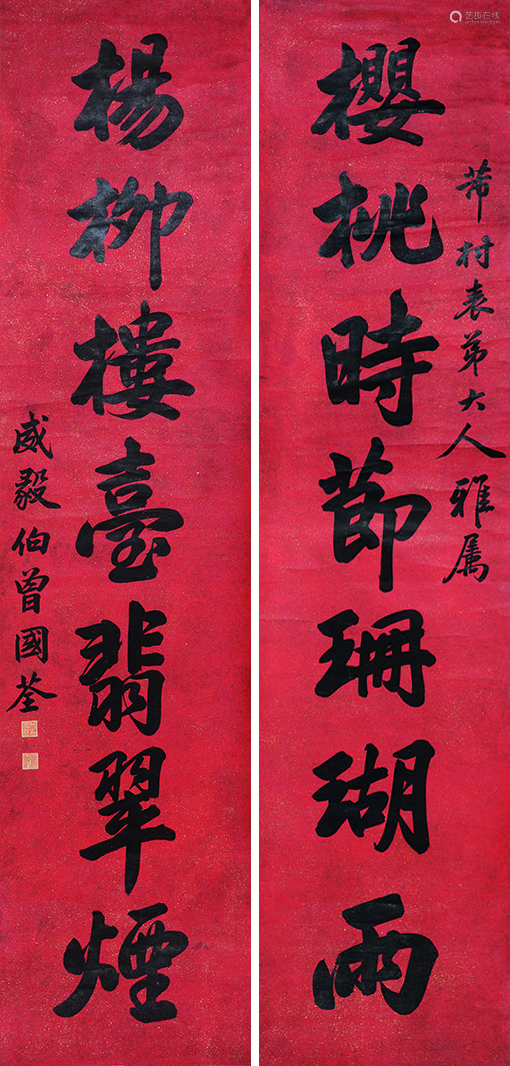 艺搜在线
芾村表弟大人雅属
櫻桃時節珊瑚雨
楊柳樓臺翡翠煙
威毅伯曾國荃